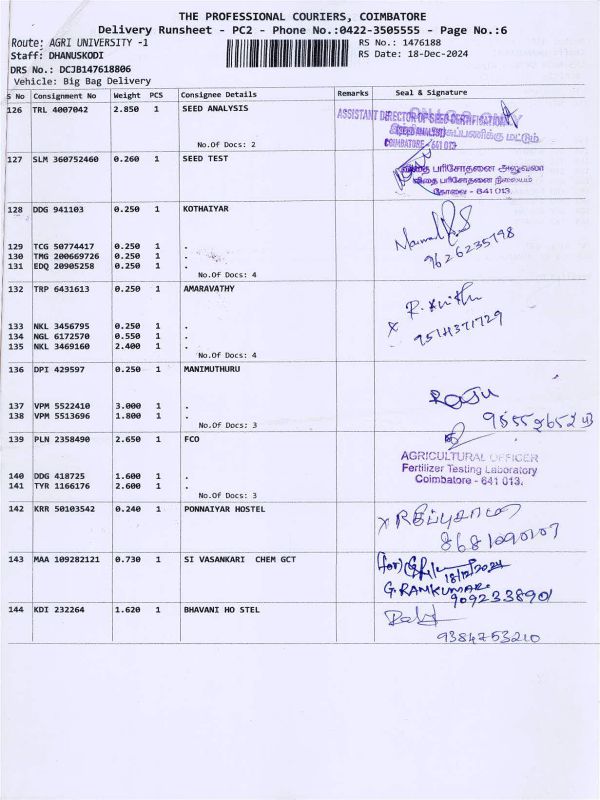 THE PROFESSIONAL COURIERS, COIMBATORE
Delivery Runsheet - PC2 - Phone No.:0422-3505555 - Page No.:6
Route: AGRI UNIVERSITY -1
RS No.: 1476188
Staff: DHANUSKODI
RS Date: 18-Dec-2024
DRS No.: DCJB147618806
Vehicle: Big Bag Delivery
S No Consignment No Weight PCS Consignee Details Remarks Seal & Signature
126 TRL 4007042 2.850 1 SEED ANALYSIS
ASSISTANT DIRECTOR OF SEED CERTIFICATION
(SEED ANALYSIS) சுப்பணிக்கு மட்டும்
COIMBATORE - 641 013
No.Of Docs: 2
127 SLM 360752460 0.260 1 SEED TEST
விதை பரிசோதனை அலுவலர்
விதை பரிசோதனை நிலையம்
கோவை - 641 013.
128 DDG 941103 0.250 1 KOTHAIYAR
9626235198
129 TCG 50774417 0.250 1 .
130 TMG 200669726 0.250 1 .
131 EDQ 20905258 0.250 1 .
No.Of Docs: 4
132 TRP 6431613 0.250 1 AMARAVATHY
133 NKL 3456795 0.250 1 .
134 NGL 6172570 0.550 1 .
135 NKL 3469160 2.400 1 .
No.Of Docs: 4
136 DPI 429597 0.250 1 MANIMUTHURU
137 VPM 5522410 3.000 1 .
138 VPM 5513696 1.800 1 .
No.Of Docs: 3
139 PLN 2358490 2.650 1 FCO
AGRICULTURAL OFFICER
Fertilizer Testing Laboratory
Coimbatore - 641 013.
140 DDG 418725 1.600 1 .
141 TYR 1166176 2.600 1 .
No.Of Docs: 3
142 KRR 50103542 0.240 1 PONNAIYAR HOSTEL
8681090107
143 MAA 109282121 0.730 1 SI VASANKARI CHEM GCT
(for)
18/12/2024
G. RAMKUMAR
9092338901
144 KDI 232264 1.620 1 BHAVANI HO STEL
9384753210